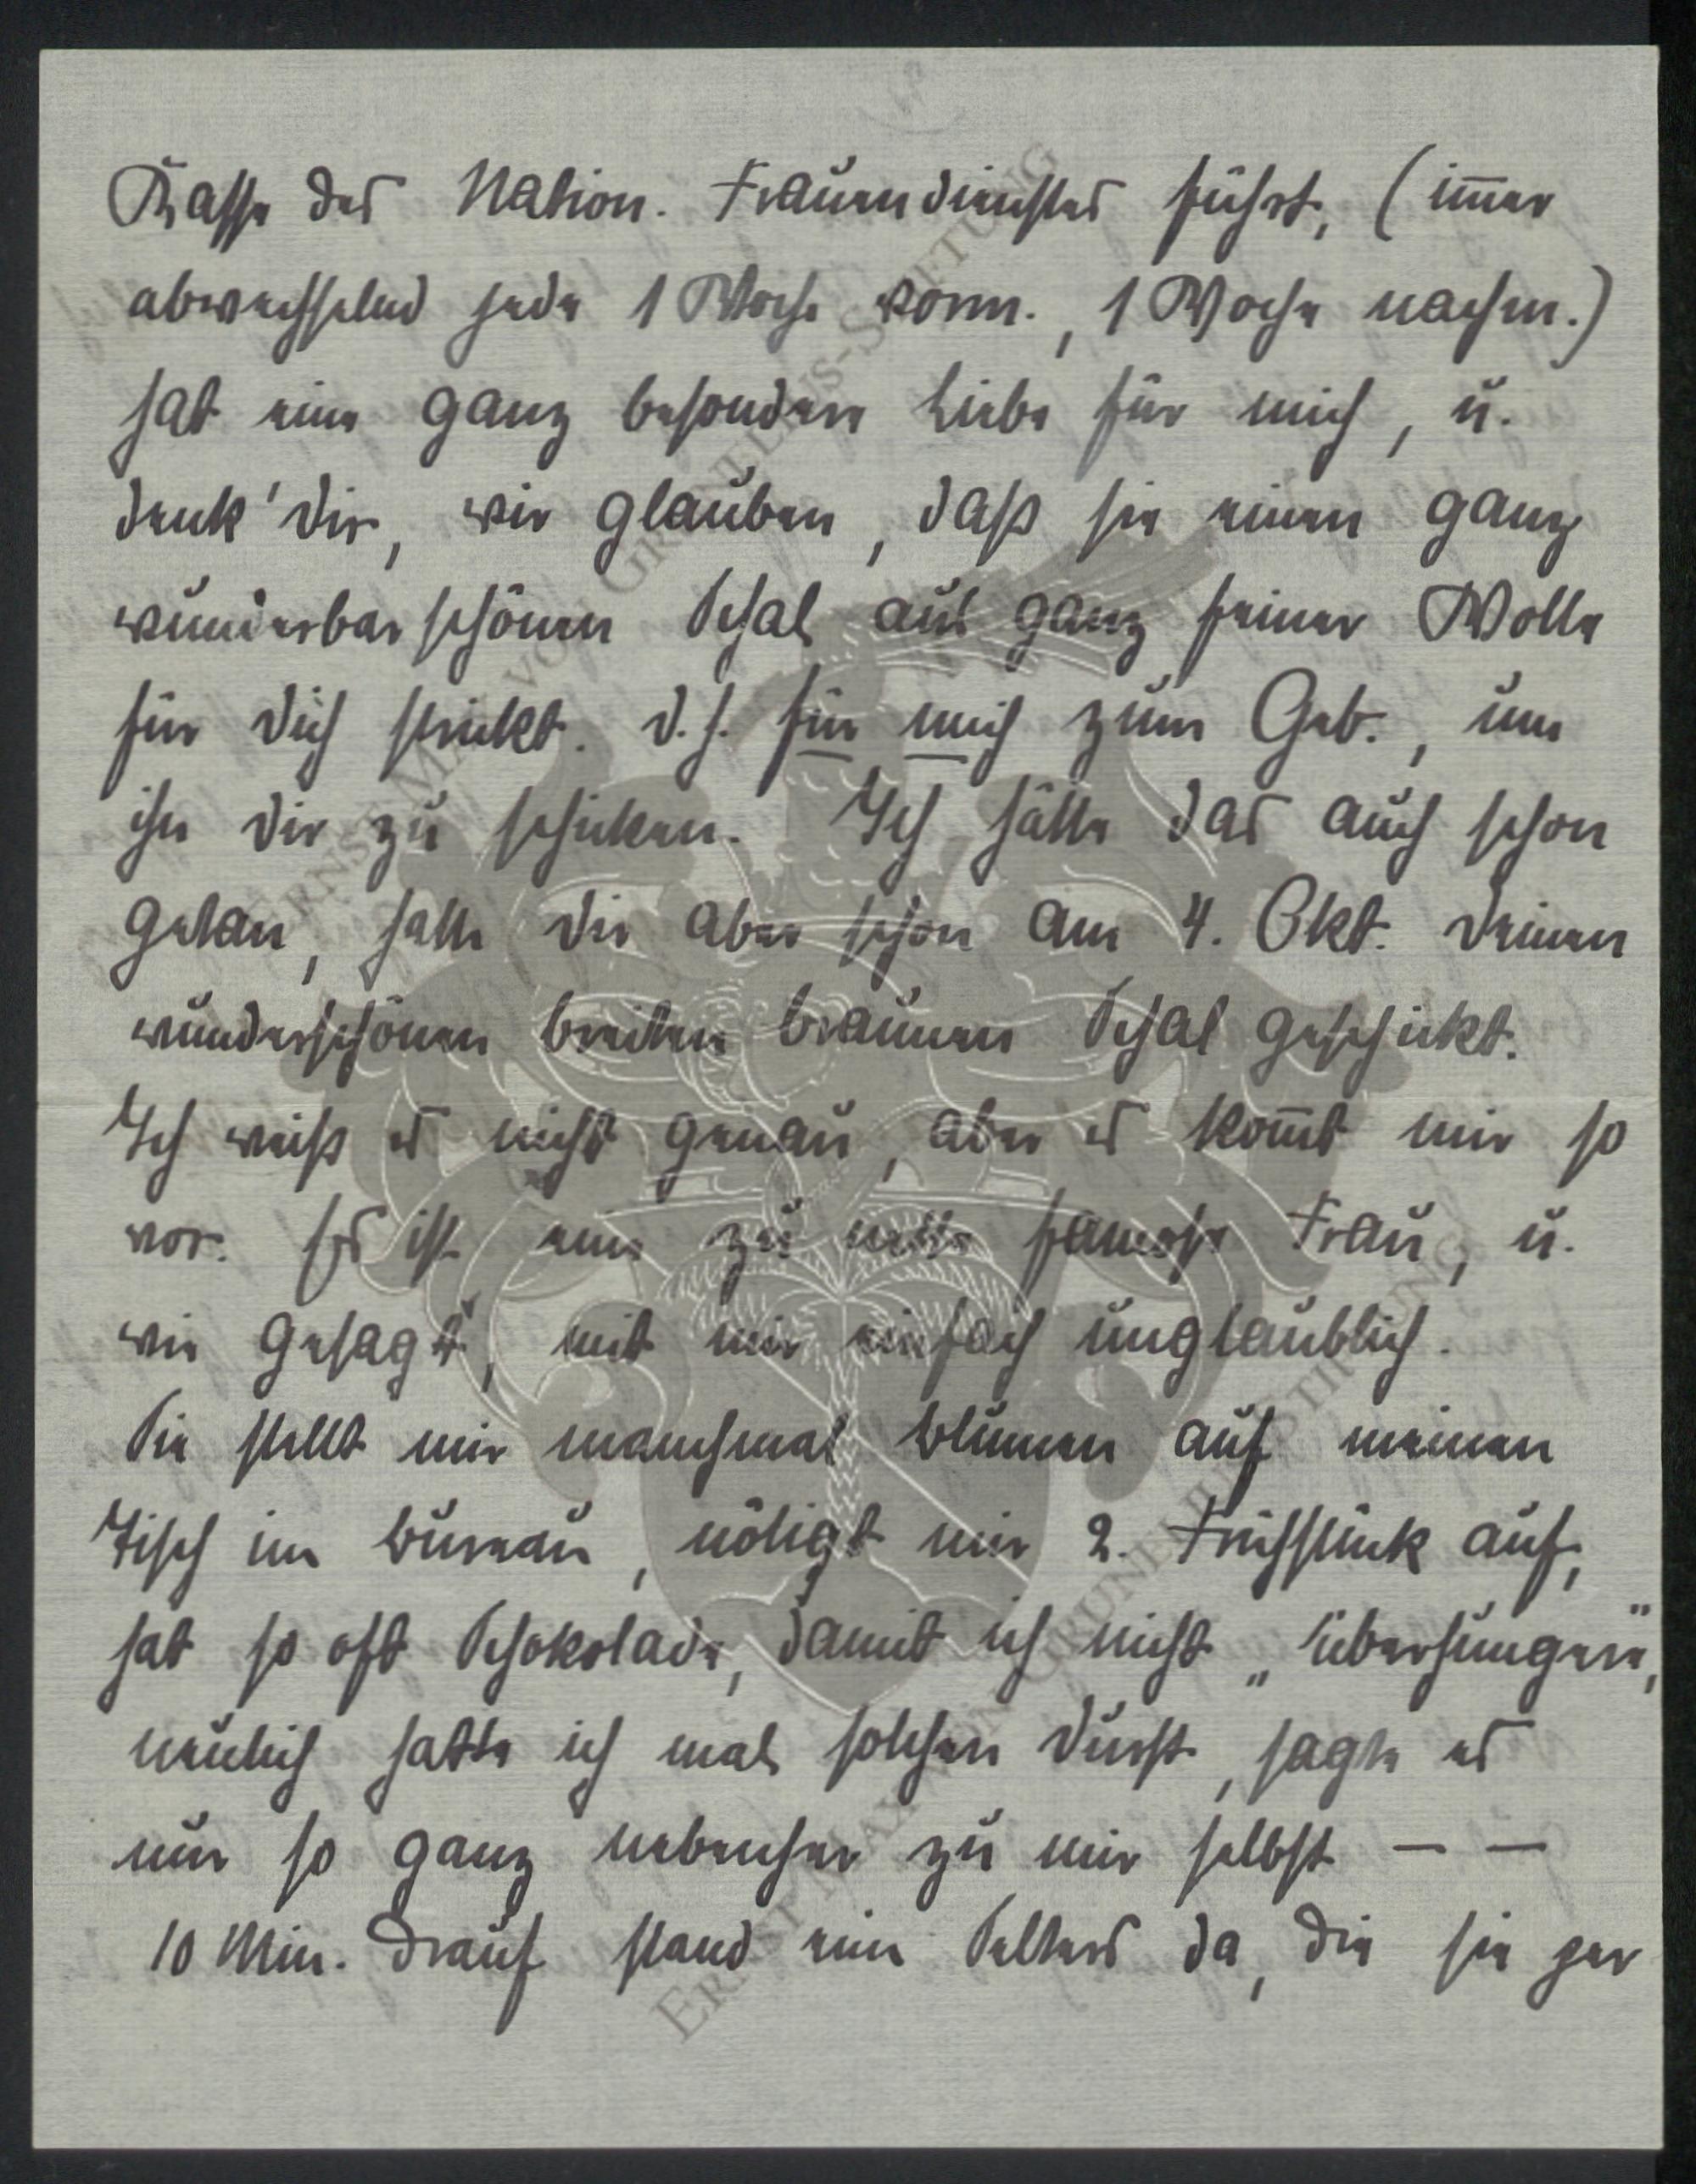 Kasse des Nation. Frauendienstes führt, (im̅er
abwechselnd jede 1 Woche vorm., 1 Woche nachm.)
hat eine ganz besondere Liebe für mich, u.
denk' dir, wir glauben, daß sie einen ganz
wunderbar schönen Schal aus ganz feiner Wolle
für dich strickt. d.h. für mich zum Geb., um
ihn dir zu schicken. Ich hätte das auch schon
getan, hatte dir aber schon am 4. Okt. deinen
wunderschönen breiten braunen Schal geschickt.
Ich weiß es nicht genau, aber es kom̅t mir so
vor. Es ist eine zu nette famose Frau, u.
wie gesagt, mit mir einfach unglaublich.
Sie stellt mir manchmal Blumen auf meinen
Tisch im Bureau, nötigt mir 2. Frühstück auf,
hat so oft Schokolade, damit ich nicht „überhungere",
neulich hatte ich mal solchen Durst, sagte es
nur so ganz nebenher zu mir selbst – –
10 Min. drauf stand eine Selters da, die sie per
ERNST MAX VON GRUNELIUS-STIFTUNG
ERNST MAX VON GRUNELIUS-STIFTUNG